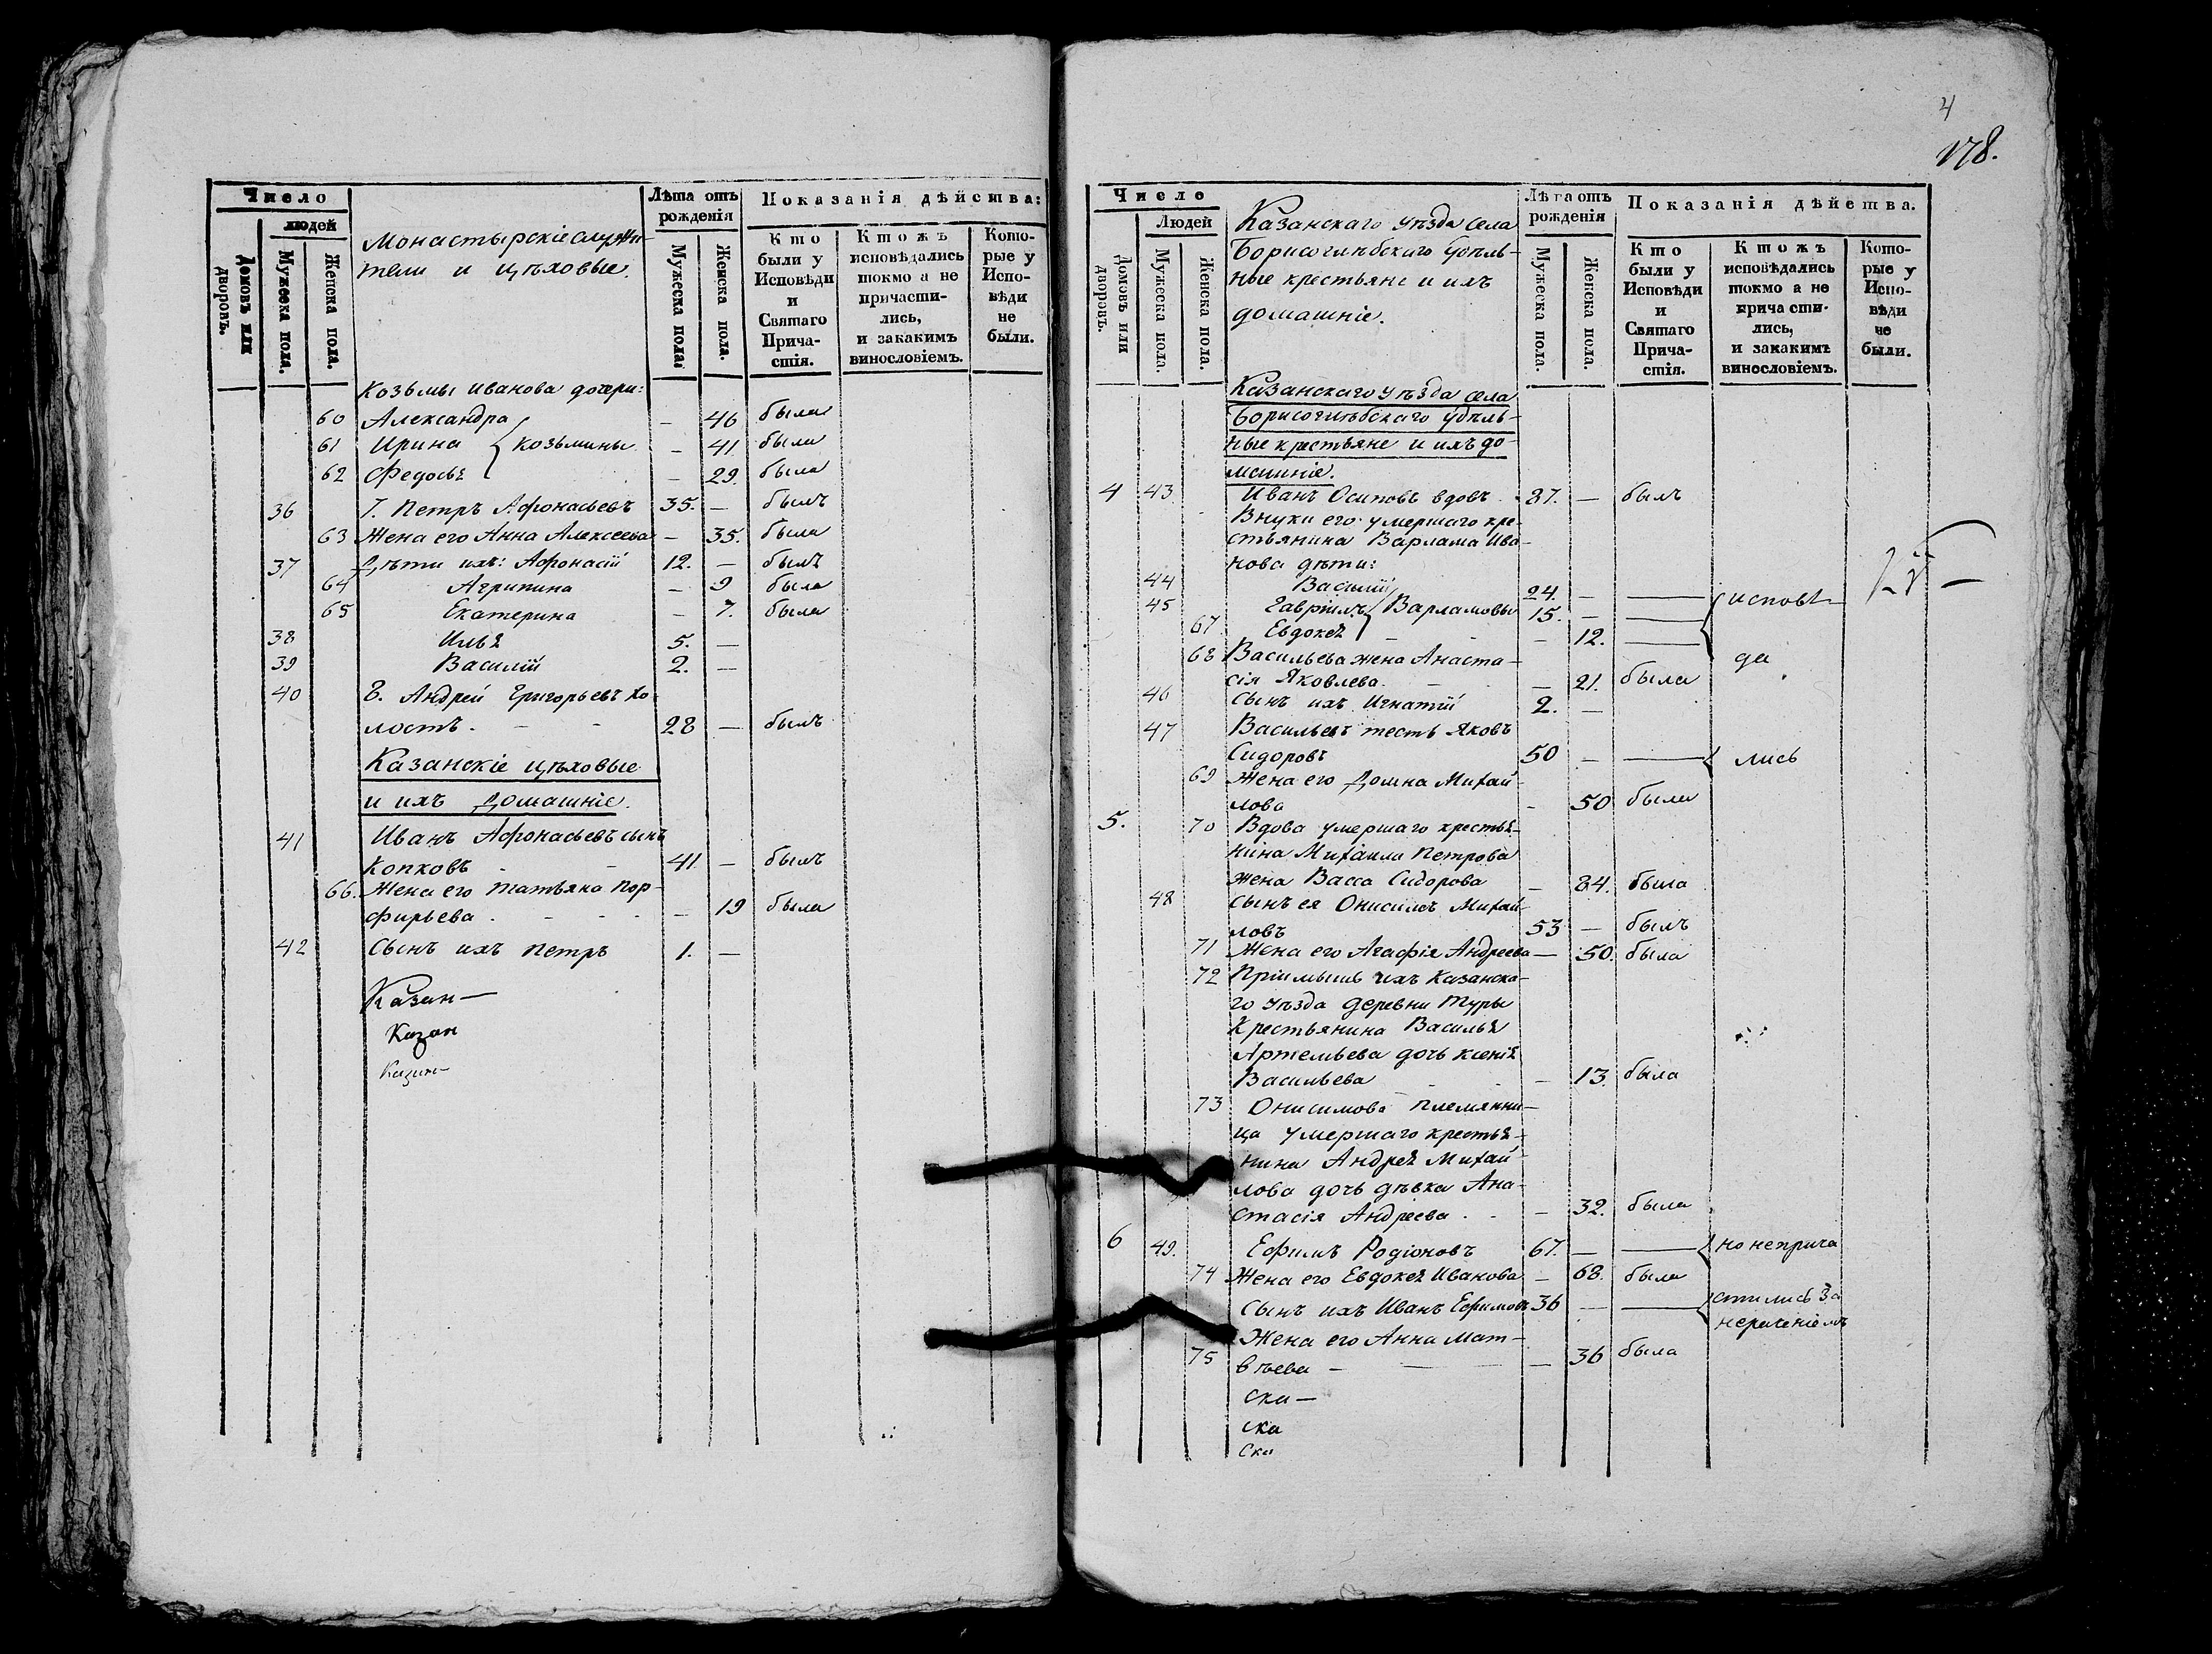 Число
людей
Домовъ или дворовъ.
Мужеска пола.
Женска пола.
Монастырскіе служи-
тели и цѣховые.
Лѣта отъ рожденія
Мужеска пола.
Женска пола.
Показанія дѣйства:
Кто были у Исповѣди и Святаго Причастія.
Ктожъ исповѣдались токмо а не причастились, и закакимъ винословіемъ.
Которые у Исповѣди не были.
Козьмы Иванова дочери:
60 Александра — 46 была
61 Ирина Козьмины — 41 была
62 Федосья — 29. была
36 7. Петръ Афонасьевъ 35. — былъ
63 Жена его Анна Алексеева — 35. была
37 Дѣти ихъ: Афонасій 12. — былъ
64 Агрипина — 9 была
65 Екатерина — 7. была
38 Илья 5. —
39 Василій 2. —
40 8. Андрей Григорьевъ хо-
лостъ. 28 — былъ
Казанскіе цѣховые
и ихъ домашніе.
41 Иванъ Афонасьевъ сынъ
Копковъ 41 — былъ
66. Жена его Татьяна Пор-
фирьева — 19 была
42 Сынъ ихъ Петръ 1. —
Казан—
Казан
Казан—
4
178.
Число
Людей
Домовъ или дворовъ.
Мужеска пола.
Женска пола.
Казанскаго уѣзда села
Борисоглѣбскаго удѣль-
ные крестьяне и ихъ
домашніе.
Лѣта отъ рожденія
Мужеска пола.
Женска пола.
Показанія дѣйства.
Кто были у Исповѣди и Святаго Причастія.
Ктожъ исповѣдались токмо а не причастились, и закакимъ винословіемъ.
Которые у Исповѣди не были.
Казанскаго уѣзда села
Борисоглѣбскаго удѣль-
ные крестьяне и ихъ до-
машніе.
4 43 Иванъ Осиповъ вдовъ 87. — былъ
Внуки его умершаго кре-
стьянина Варлама Ива-
нова дѣти:
44 Василій 24. — — исповѣ-
45 Гавріилъ Варламовы 15. — —
67 Евдокея — 12. —
68 Васильева жена Анаста- да
сія Яковлева. — 21. была
46 Сынъ ихъ Игнатій 2. —
47 Васильевъ тесть Яковъ
Сидоровъ 50 — — лись
69 Жена его Домна Михай-
лова - 50 была
5. 70 Вдова умершаго крестья-
нина Михаила Петрова
жена Васса Сидорова — 84. была
48 Сынъ ея Онисимъ Михай-
ловъ 53 — былъ
71 Жена его Агафія Андреева — 50. была
72 Пріимышъ ихъ Казанска-
го уѣзда деревни Туры
Крестьянина Василья
Артемьева дочь Ксенія
Васильева — 13. была
73 Онисимова племянни-
ца умершаго крестья-
нина Андрея Михай-
лова дочь дѣвка Ана-
стасія Андреева — 32. была
6 49. Ефимъ Родіоновъ 67. — — но неприча
74 Жена его Евдокея Иванова — 68. была
Сынъ ихъ Иванъ Ефимовъ 36 — — стились за
нераченіемъ
Жена его Анна Мат-
75 вѣева — — 36 была
ска—
ска
ска